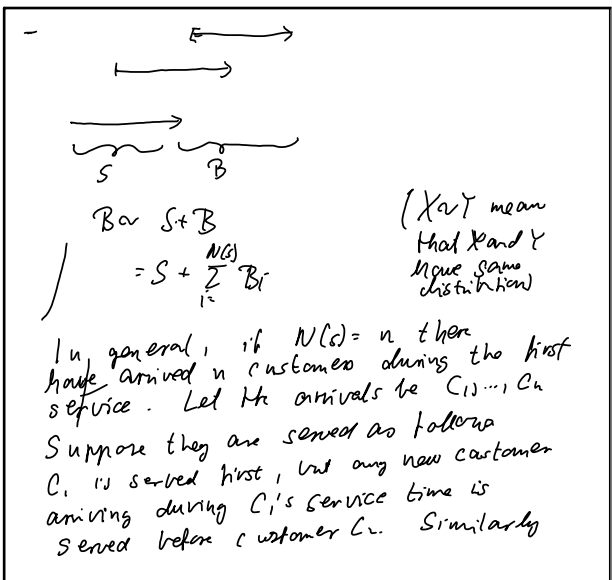 -
S B
B ~ S + B
= S + N(s) Σ i= Bi
( X ~ Y mean
that X and Y
have same
distribution)
In general, if N(s) = n there
have arrived n customers during the first
service. Let the arrivals be C1, ..., Cn
Suppose they are served as follows
C1 is served first, but any new customer
arriving during C1's service time is
served before customer C2. Similarly